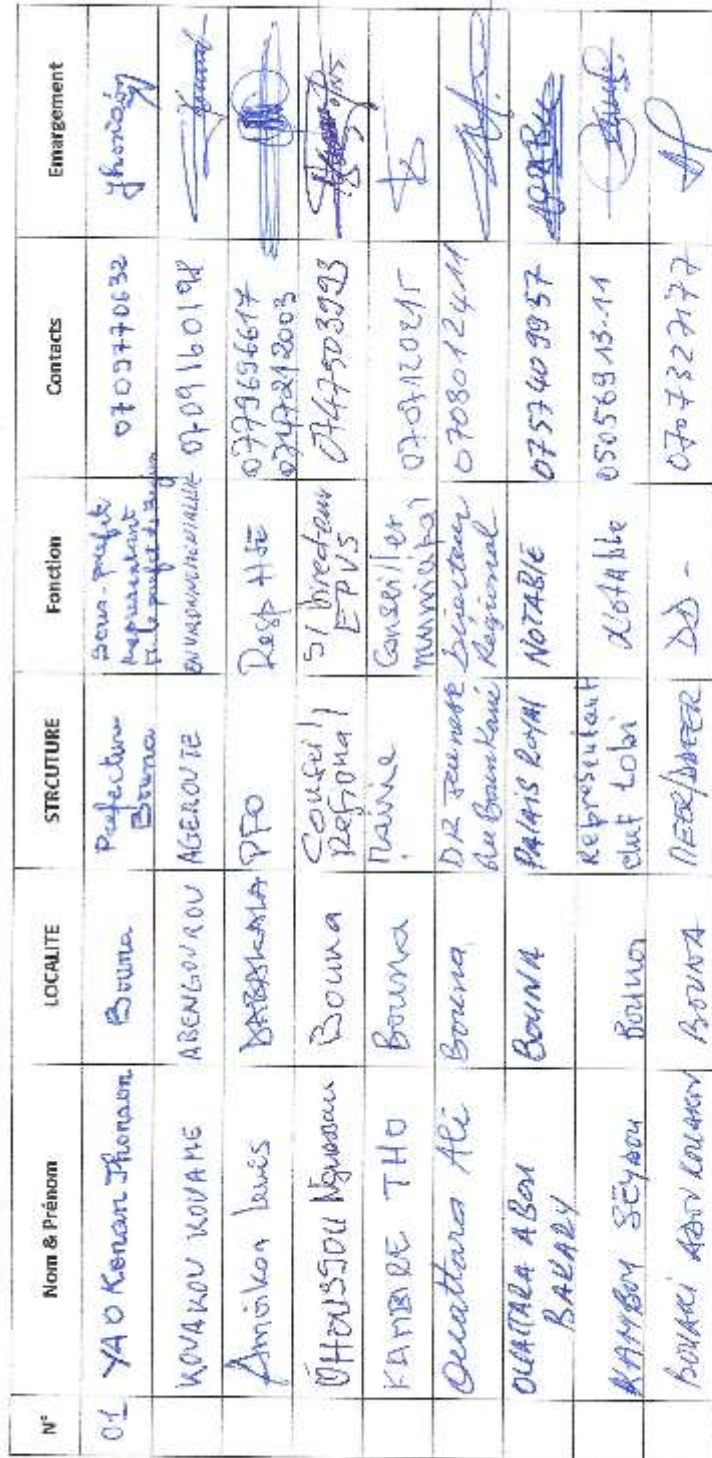 N° Nom & Prénom LOCALITE STRCUTURE Fonction Contacts Emargement
01 YAO Konan Thomson Bouna Prefecture Bouna Sous-prefet Représentant 0709770632
KOUAKOU KOUAME ABENGOUROU AGEROUTE ENVIRONNEMENTALISTE 0709160198
Amoikon Louis DABAKALA PFO Resp HSE 0779696617
0747212003
OHOUSSOU Nguessan Bouna Conseil Regional S/Directeur EPVS 0747503993
KAMBIRE THO Bouna Mairie Conseiller municipal 0707120215
Ouattara Ali Bouna DR Jeunesse du Bounkani Directeur Régional 0708012411
OUATTARA ABOU BAKARY BOUNA PALAIS ROYAL NOTABLE 0757409957
KAMBOU SEYDOU Bouna Représentant chef Lobi Notable 05056913-11
BOUNA DD - 0707327177